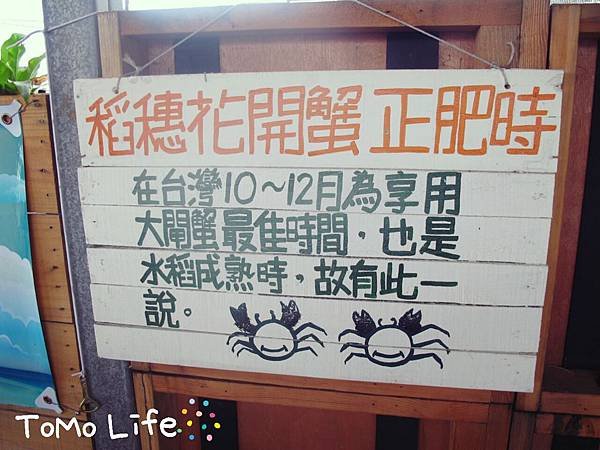 稻穗花開蟹 正肥時
在台灣10～12月為享用
大閘蟹最佳時間，也是
水稻成熟時，故有此一
說。
ToMo Life